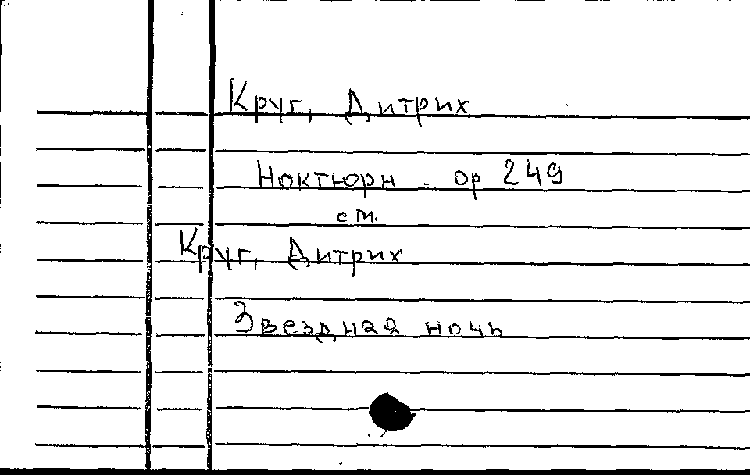 Круг, Дитрих
Ноктюрн. ор 249
см.
Круг, Дитрих
Звездная ночь